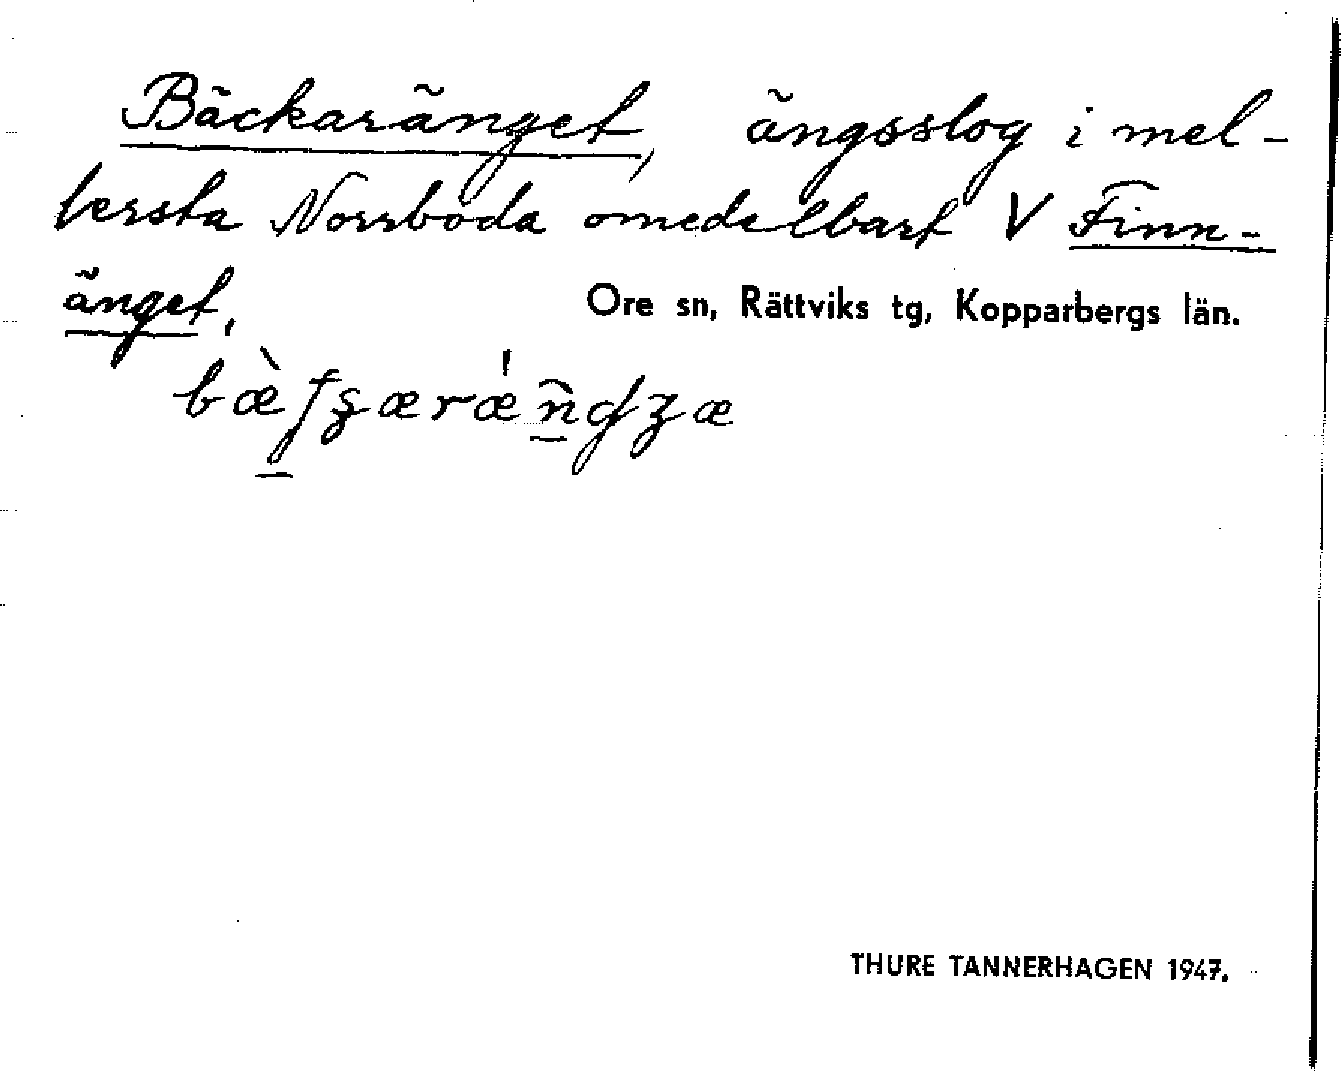 Bäckaränget, ängsslog i mel-
lersta Norrboda omedelbart V Finn-
änget.
Ore sn, Rättviks tg, Kopparbergs län.
THURE TANNERHAGEN 1947.